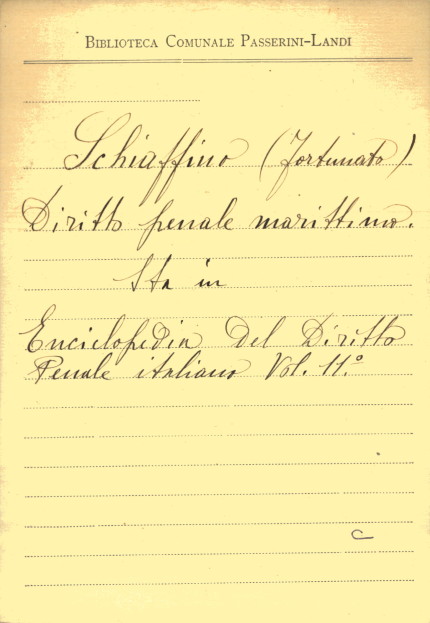 BIBLIOTECA COMUNALE PASSERINI-LANDI
Schiaffino (Fortunato)
Diritto penale marittimo.
Sta in
Enciclopedia del Diritto
Penale italiano Vol. 11.º
C